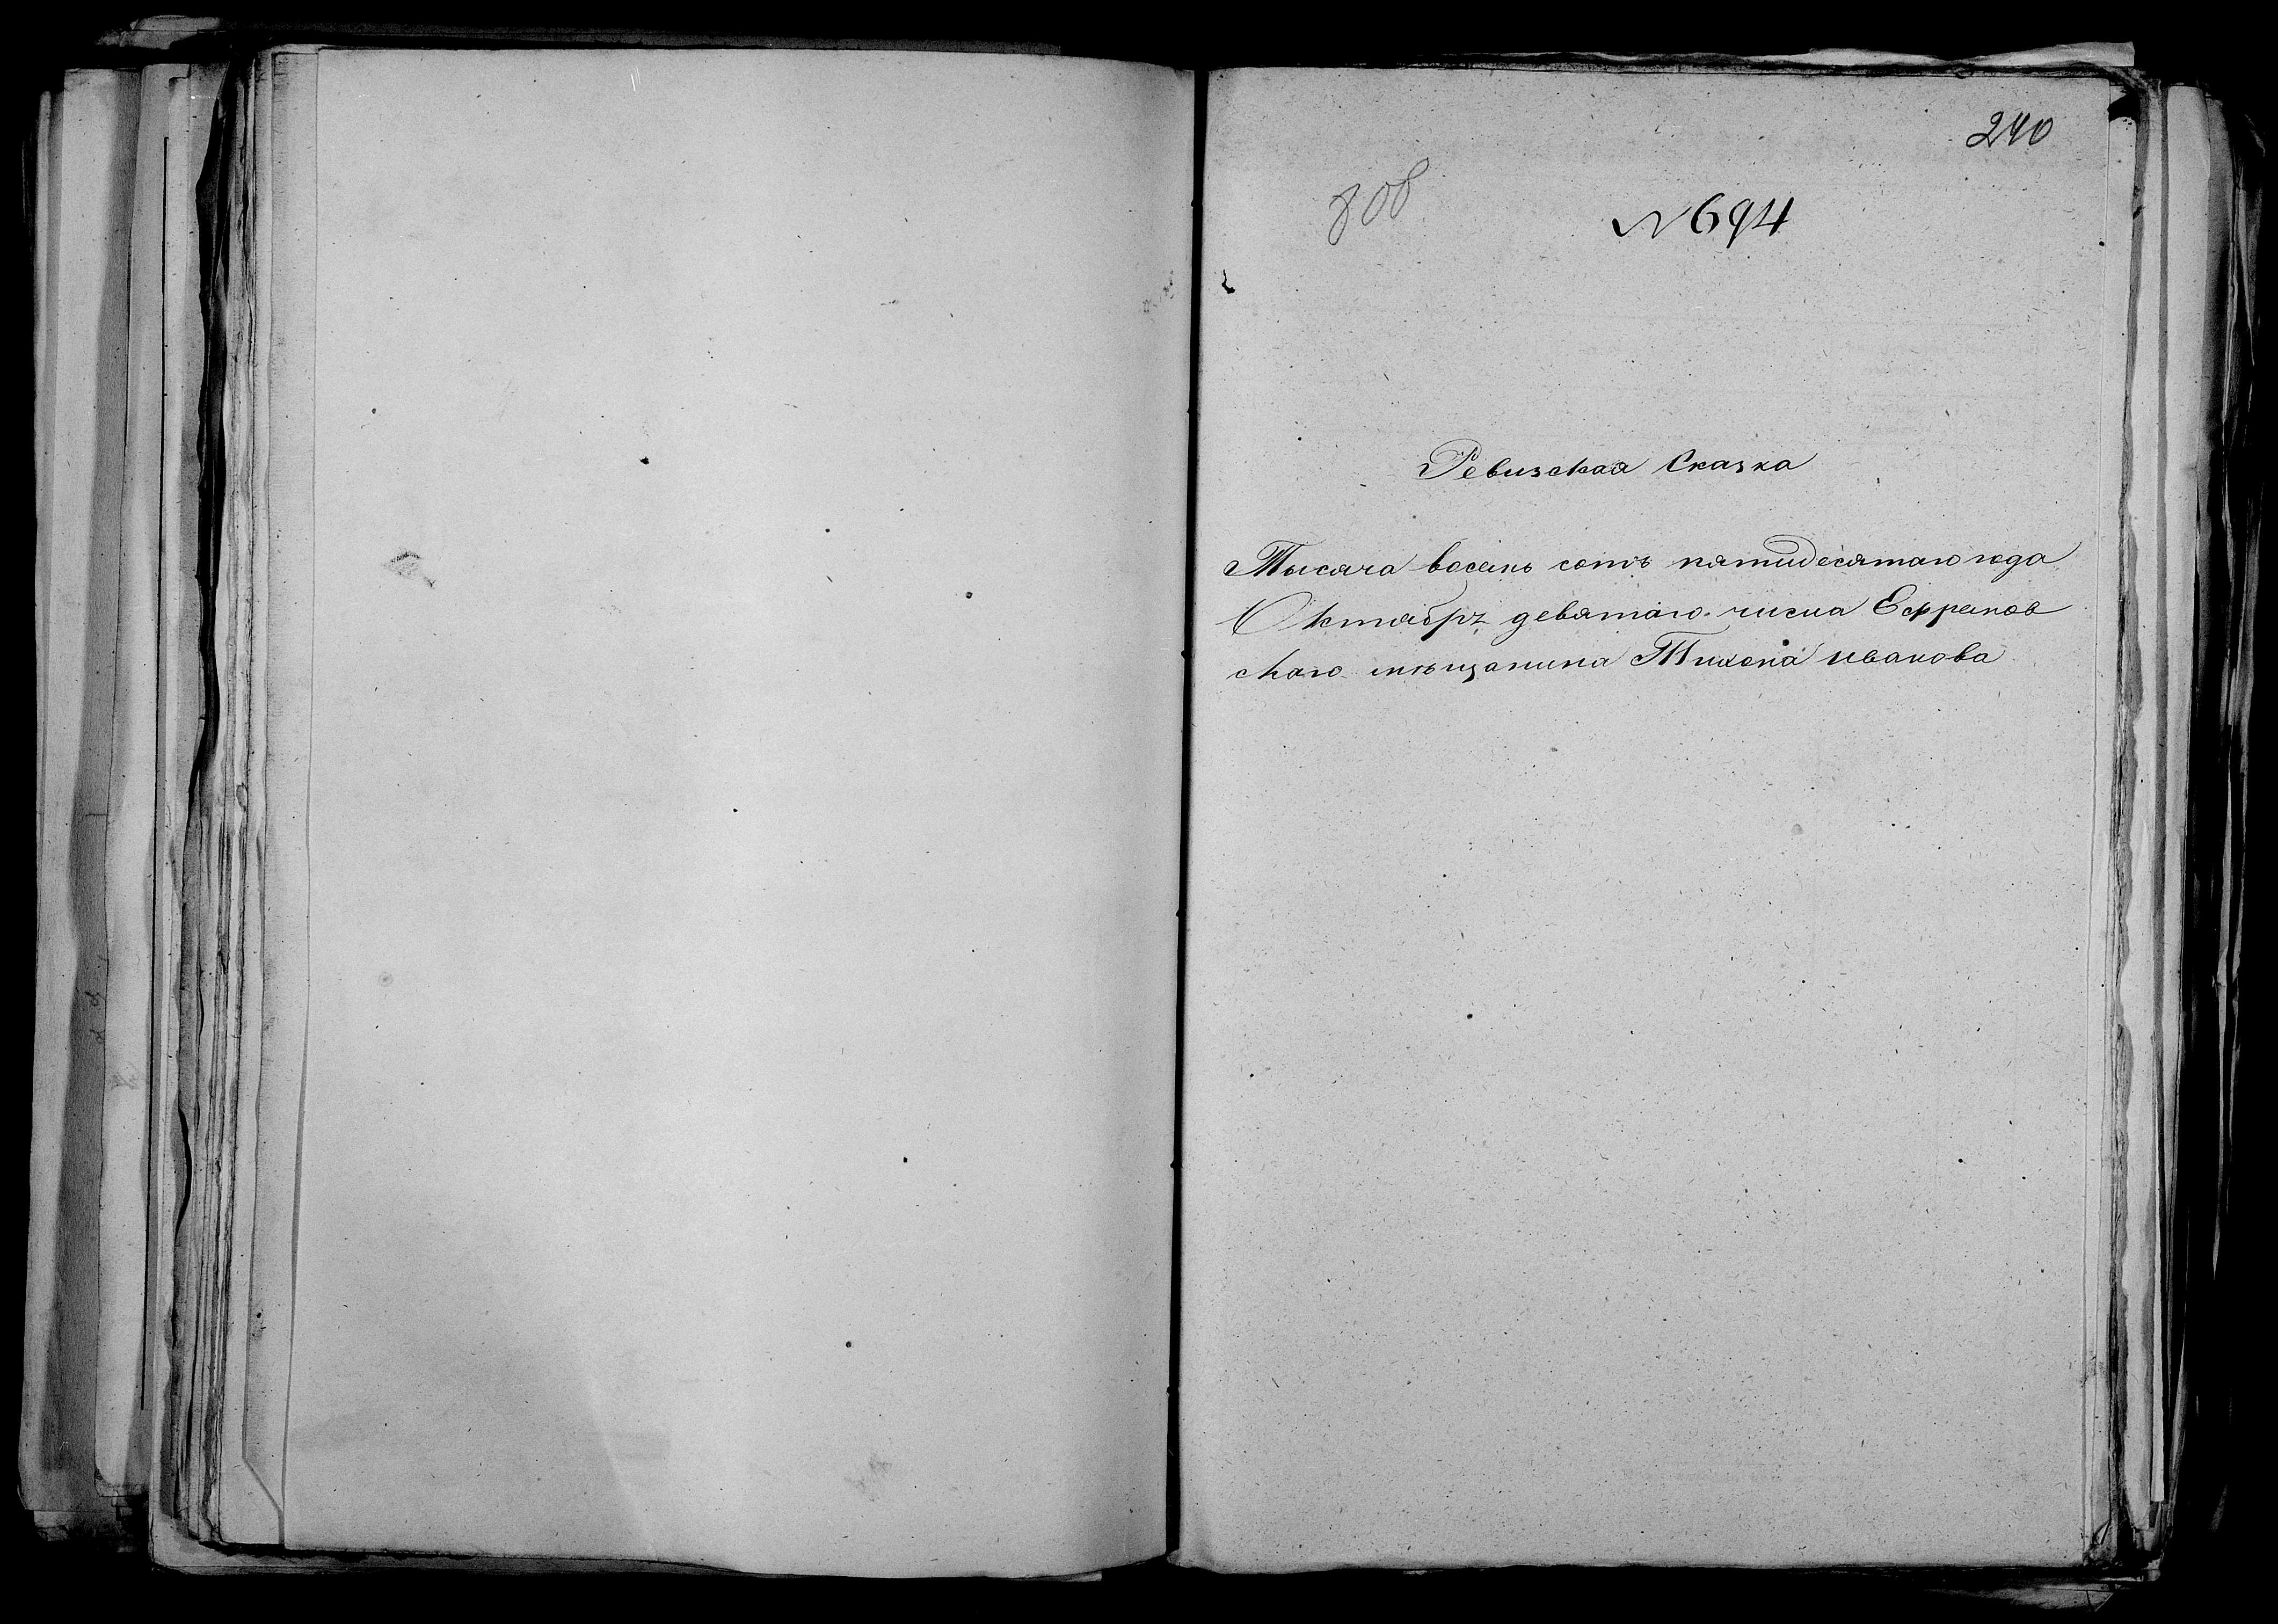 240
808
№ 694
Ревизская Сказка
Тысяча восемь сотъ пятидесятаго года
Октябрz девятаго числа Ефремов
скаго мѣщанина Тихона иванова